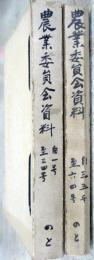 農業委員会資料
自一号
至三四号
のと
農業委員会資料
自三五号
至六四号
のと